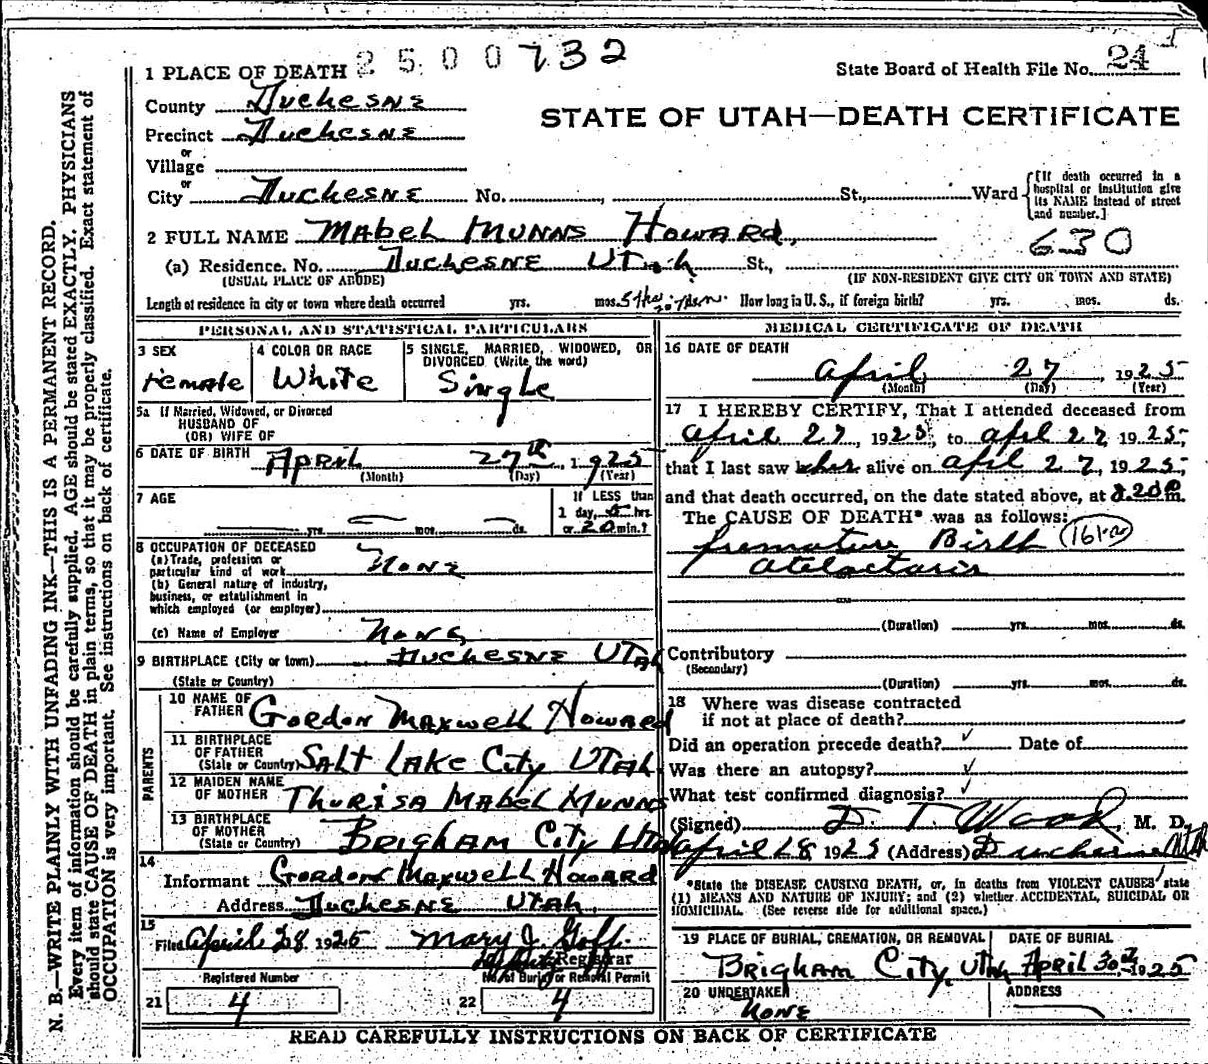 2500732
1 PLACE OF DEATH
State Board of Health File No. 24
County Duchesne
STATE OF UTAH—DEATH CERTIFICATE
Precinct Duchesne
or
Village
or
City Duchesne No. St., Ward
[If death occurred in a hospital or institution give its NAME instead of street and number.]
2 FULL NAME Mabel Munns Howard,
630
(a) Residence. No. Duchesne Utah St.,
(USUAL PLACE OF ABODE) (IF NON-RESIDENT GIVE CITY OR TOWN AND STATE)
Length of residence in city or town where death occurred yrs. mos. 5 hrs 20 min. How long in U.S., if foreign birth? yrs. mos. ds.
PERSONAL AND STATISTICAL PARTICULARS
3 SEX
Female
4 COLOR OR RACE
White
5 SINGLE, MARRIED, WIDOWED, OR
DIVORCED (Write the word)
Single
5a If Married, Widowed, or Divorced
HUSBAND OF
(OR) WIFE OF
6 DATE OF BIRTH April 27th, 1925
(Month) (Day) (Year)
7 AGE
yrs. mos. ds.
If LESS than
1 day, 5 hrs.
or 20 min.?
8 OCCUPATION OF DECEASED
(a) Trade, profession or
particular kind of work None
(b) General nature of industry,
business, or establishment in
which employed (or employer)
(c) Name of Employer None
9 BIRTHPLACE (City or town) Duchesne Utah
(State or Country)
PARENTS
10 NAME OF
FATHER Gordon Maxwell Howard
11 BIRTHPLACE
OF FATHER
(State or Country) Salt Lake City Utah.
12 MAIDEN NAME
OF MOTHER Thurisa Mabel Munns
13 BIRTHPLACE
OF MOTHER
(State or Country) Brigham City Utah
14
Informant Gordon Maxwell Howard
Address Duchesne Utah.
15
Filed April 28 1925 Mary J. Goff.
Registrar
Registered Number
No. of Burial or Removal Permit
21 4
22 4
MEDICAL CERTIFICATE OF DEATH
16 DATE OF DEATH
April 27 1925
(Month) (Day) (Year)
17 I HEREBY CERTIFY, That I attended deceased from
April 27, 1925, to April 27 1925,
that I last saw her alive on April 27, 1925,
and that death occurred, on the date stated above, at .20 P m.
The CAUSE OF DEATH* was as follows:
Premature Birth
Atelectasis
(Duration) yrs. mos. ds.
Contributory
(Secondary)
(Duration) yrs. mos. ds.
18 Where was disease contracted
if not at place of death?
Did an operation precede death? ✓ Date of
Was there an autopsy? ✓
What test confirmed diagnosis? ✓
(Signed) D. T. Wood, M. D.
April 28 1925 (Address) Duchesne Utah
*State the DISEASE CAUSING DEATH, or, in deaths from VIOLENT CAUSES, state
(1) MEANS AND NATURE OF INJURY; and (2) whether ACCIDENTAL, SUICIDAL OR
HOMICIDAL. (See reverse side for additional space.)
19 PLACE OF BURIAL, CREMATION, OR REMOVAL
Brigham City, Utah
DATE OF BURIAL
April 30 1925
20 UNDERTAKER
None
ADDRESS
READ CAREFULLY INSTRUCTIONS ON BACK OF CERTIFICATE
N. B.—WRITE PLAINLY WITH UNFADING INK—THIS IS A PERMANENT RECORD.
Every item of information should be carefully supplied. AGE should be stated EXACTLY. PHYSICIANS
should state CAUSE OF DEATH in plain terms, so that it may be properly classified. Exact statement of
OCCUPATION is very important. See instructions on back of certificate.